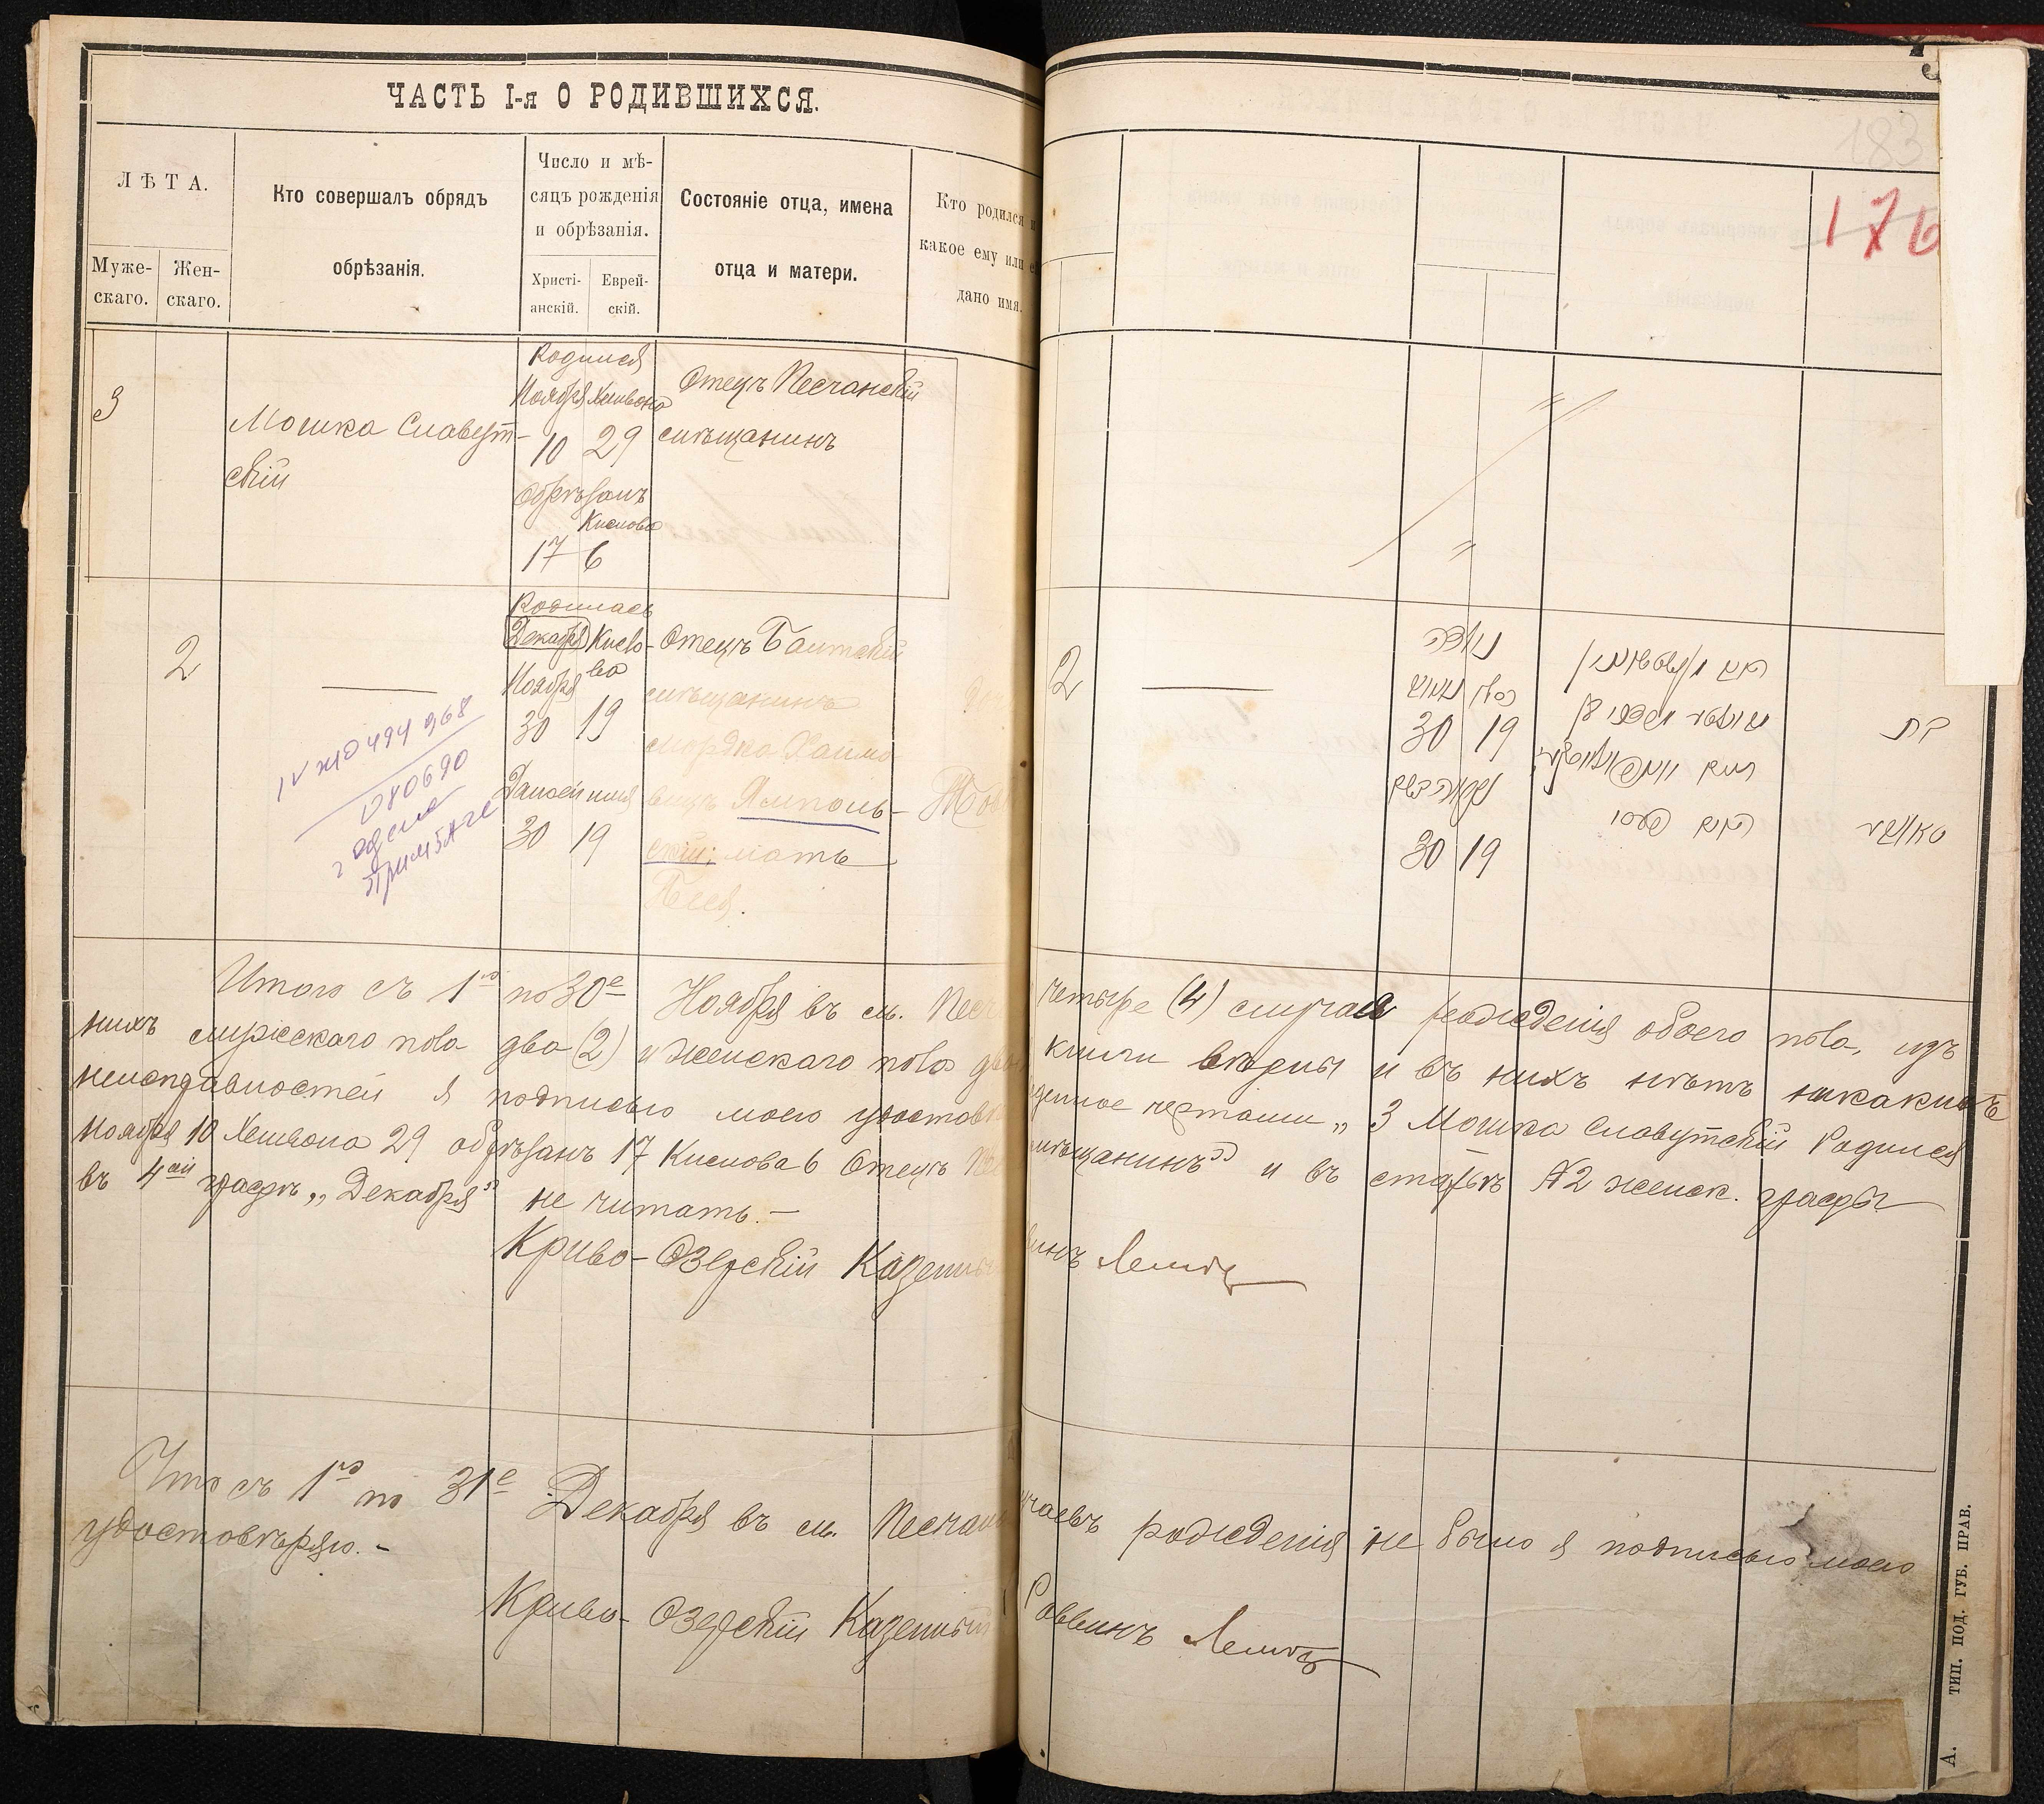 ЧАСТЬ I-я О РОДИВШИХСЯ.
ЛѢТА.
Муже-
скаго.
Жен-
скаго.
Кто совершалъ обрядъ
обрѣзанія.
Число и мѣ-
сяцъ рожденія
и обрѣзанія.
Христі-
анскій.
Еврей-
скій.
Состояніе отца, имена
отца и матери.
Кто родился и
какое ему или
дано имя.
3
Мошка Славут-
скій
Родился
Ноября Хешвона
10 29
Обрѣзанъ
Кислова
17 6
Отецъ Песчанскій
мѣщанинъ
2
—
Родилась
Декабря Кисло-
Ноября ва
30 19
Дано ей имя
30 19
Отецъ Балтскій
мѣщанинъ
Мордко Хаимо
вичъ Ямполь-
скій; мать
Песя.
IV ЖЮ 494968
1780690
183
176
2
—
30 19
30 19
בת
Итого съ 1го по 30е Ноября въ м. Песч четыре (4) случая рожденія обоего пола, изъ
нихъ мужескаго пола два (2) и женскаго пола две книги вѣрны и въ нихъ нѣтъ никакихъ
неисправностей я подписью моею удостовѣ денное чертами „3 Мошка Славутскій Родился
Ноября 10 Хешвона 29 обрѣзанъ 17 Кислова 6 Отецъ Пе мѣщанинъ” и въ статьѣ №2 женск. графы
въ 4ой графѣ „Декабря” не читать.—
Криво-Озерскій Казенны винъ
Что съ 1го по 31е Декабря въ м. Песчан учаевъ рожденія не было я подписью моею
удостовѣряю.-
Криво-Озерскій Казенный Раввинъ
А. ТИП. ПОД. ГУБ. ПРАВ.